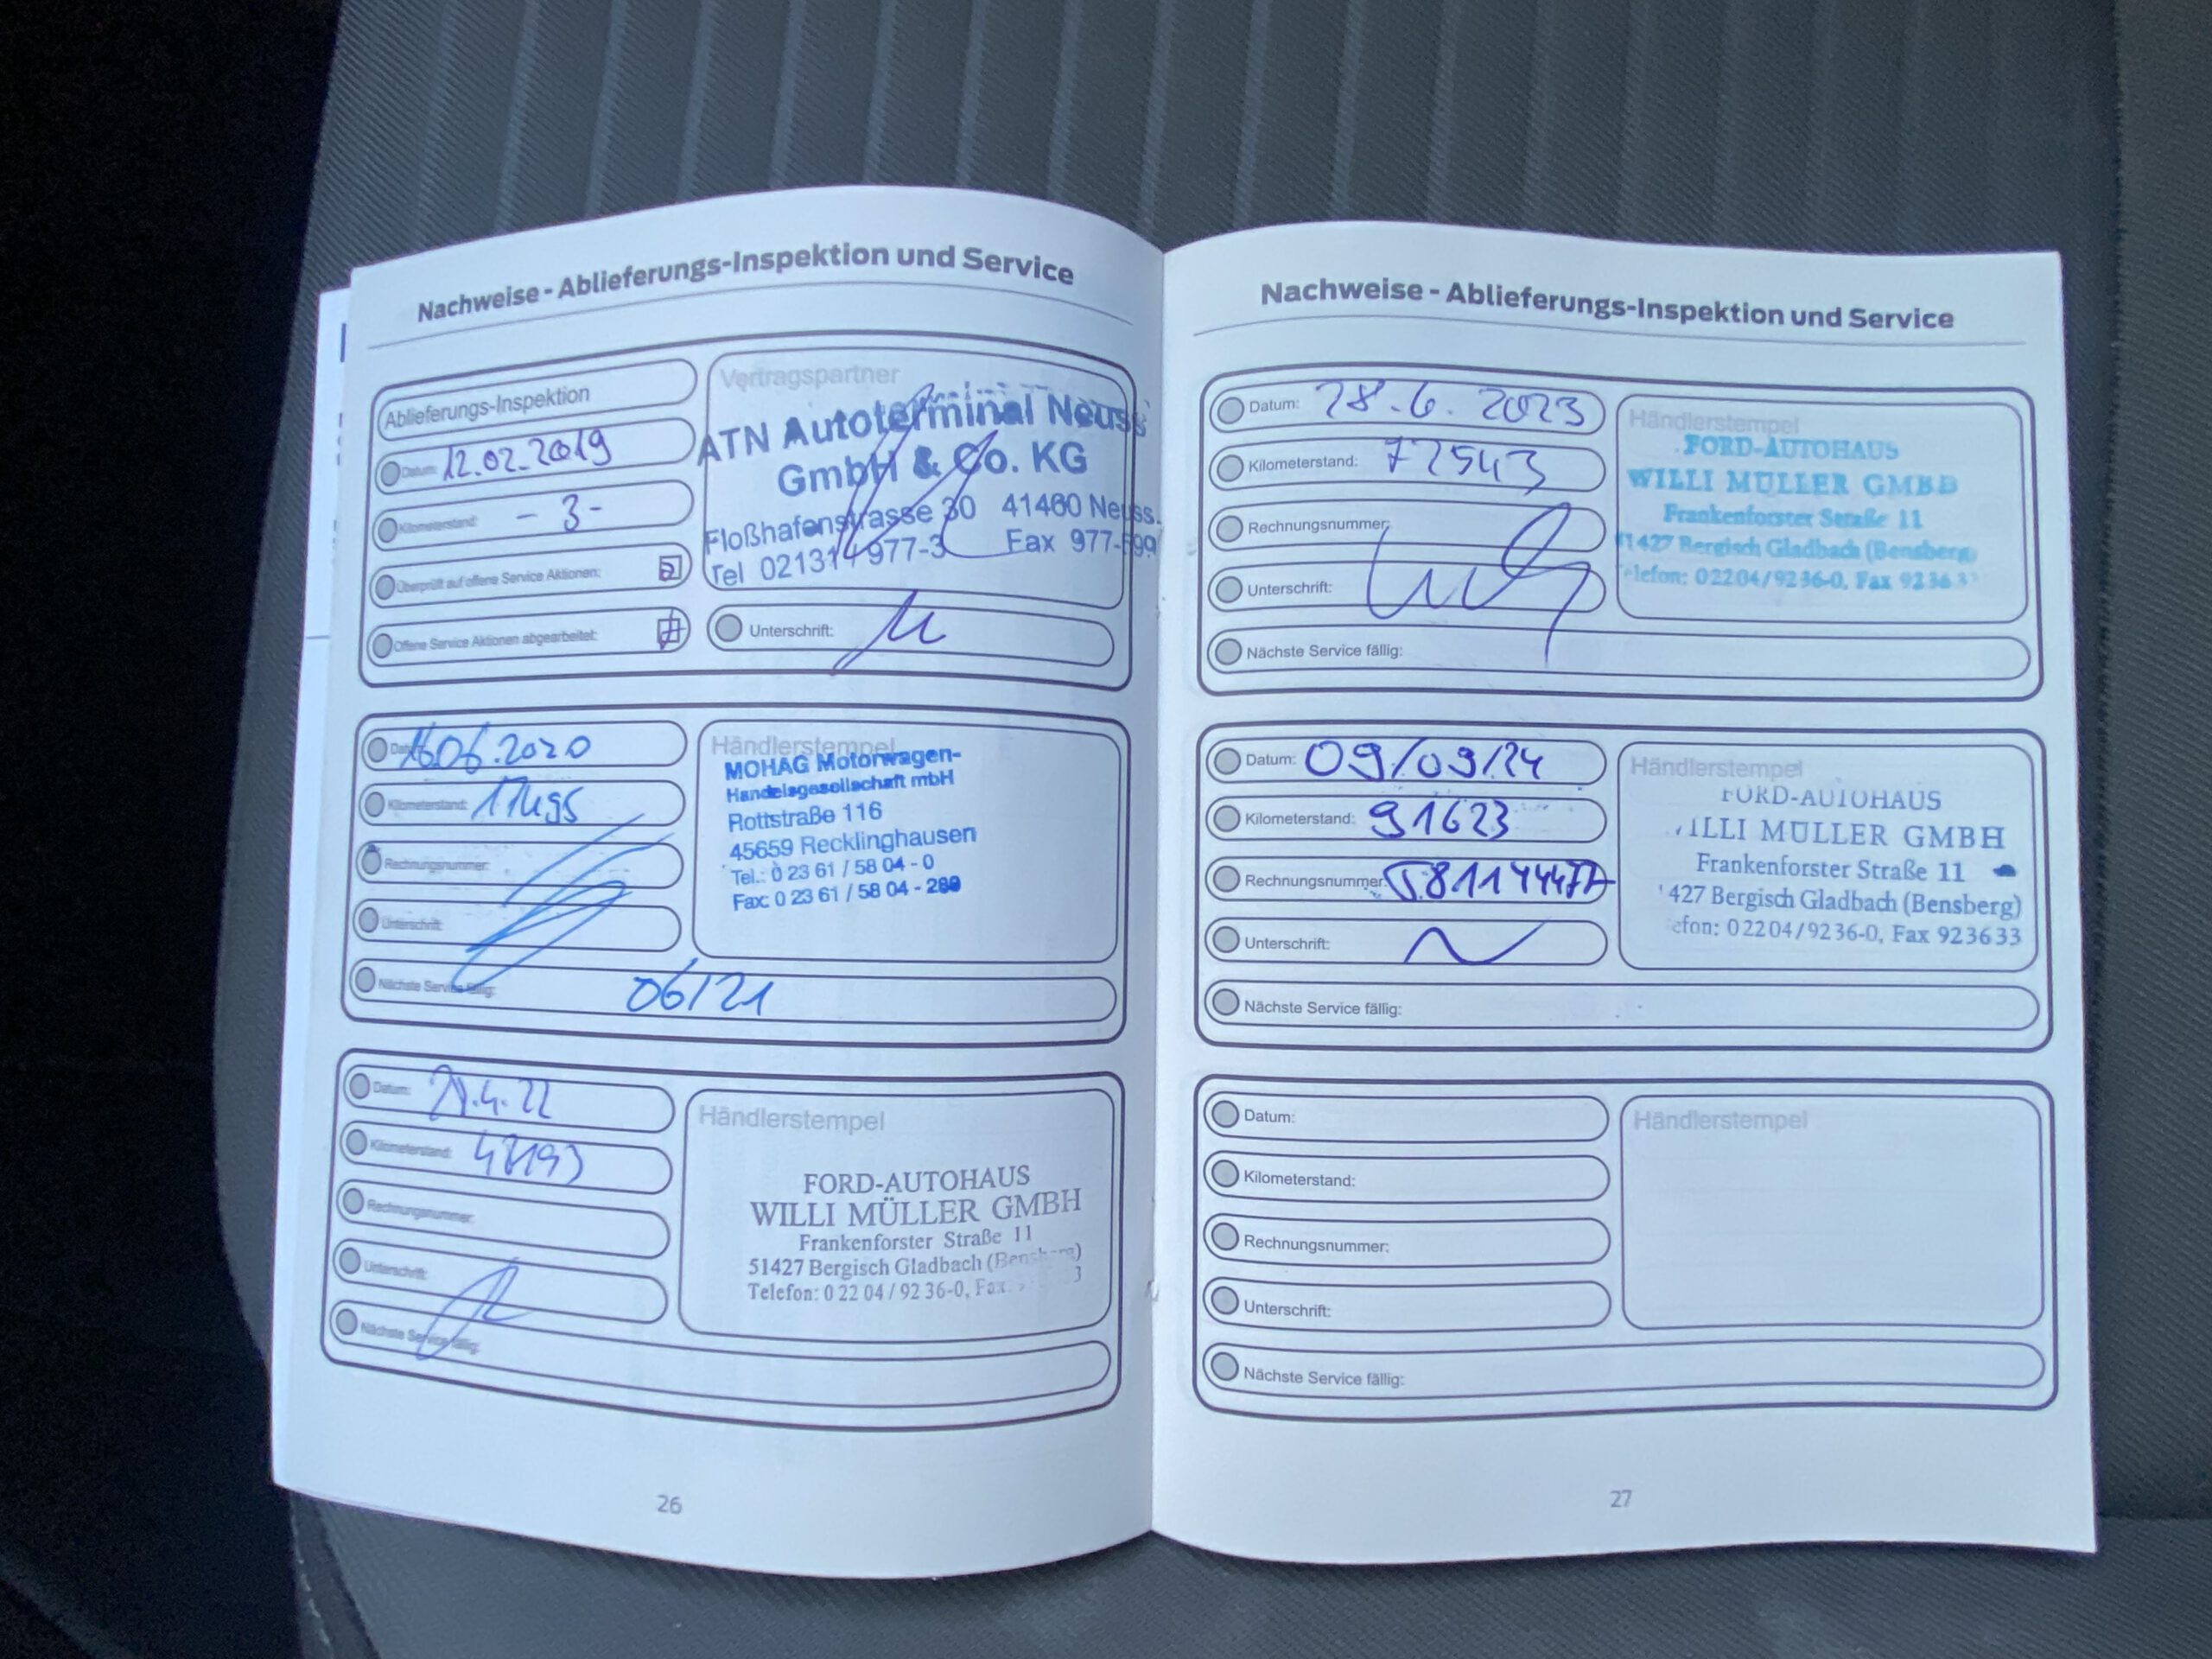 Nachweise - Ablieferungs-Inspektion und Service
Ablieferungs-Inspektion
Datum: 12.02.2019
Kilometerstand: - 3 -
Überprüft auf offene Service Aktionen:
Offene Service Aktionen abgearbeitet:
Vertragspartner
ATN Autoterminal Neuss
GmbH & Co. KG
Floßhafenstrasse 30 41460 Neuss
Tel 02131/977-3 Fax 977-599
Unterschrift:
Datum: 16.06.2020
Kilometerstand:
Rechnungsnummer:
Unterschrift:
Nächste Service fällig: 06/21
Händlerstempel
MOHAG Motorwagen-
Handelsgesellschaft mbH
Rottstraße 116
45659 Recklinghausen
Tel.: 0 23 61 / 58 04 - 0
Fax: 0 23 61 / 58 04 - 280
Datum: .4.22
Kilometerstand:
Rechnungsnummer:
Unterschrift:
Nächste Service fällig:
Händlerstempel
FORD-AUTOHAUS
WILLI MÜLLER GMBH
Frankenforster Straße 11
51427 Bergisch Gladbach (Bensberg)
Telefon: 0 22 04 / 92 36-0, Fax
26
Nachweise - Ablieferungs-Inspektion und Service
Datum: 28.6.2023
Kilometerstand: 72543
Rechnungsnummer:
Unterschrift:
Nächste Service fällig:
Händlerstempel
FORD-AUTOHAUS
WILLI MÜLLER GMBH
Frankenforster Straße 11
51427 Bergisch Gladbach (Bensberg)
Telefon: 02204/9236-0, Fax 9236
Datum: 09/09/24
Kilometerstand: 91623
Rechnungsnummer:
Unterschrift:
Nächste Service fällig:
Händlerstempel
FORD-AUTOHAUS
WILLI MÜLLER GMBH
Frankenforster Straße 11
427 Bergisch Gladbach (Bensberg)
efon: 02204/9236-0, Fax 923633
Datum:
Kilometerstand:
Rechnungsnummer:
Unterschrift:
Nächste Service fällig:
Händlerstempel
27